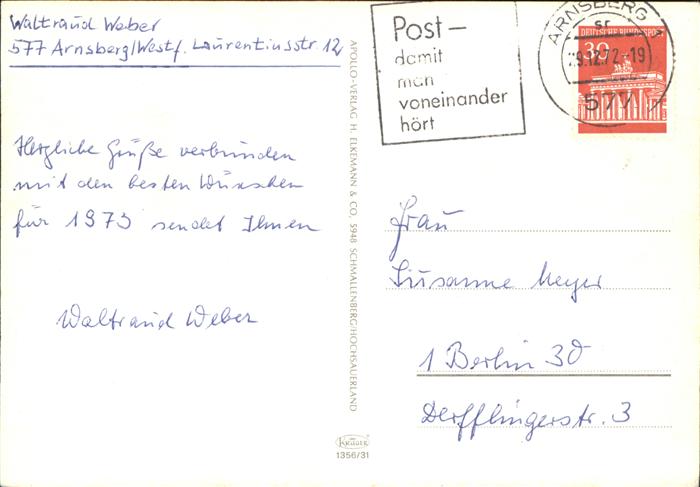 Waltraud Weber
577 Arnsberg/Westf. Laurentiusstr 12
Herzliche Grüße verbunden
mit den besten Wünschen
für 1973 sendet Ihnen
Waltraud Weber
APOLLO-VERLAG H. ELKEMANN & CO, 5948 SCHMALLENBERG/HOCHSAUERLAND
KRÜGER
1356/31
Post-
damit
man
voneinander
hört
ARNSBERG
sr
29.12.72-19
577
DEUTSCHE BUNDESPOST
30
Frau
Susanne Meyer
1 Berlin 30
Derfflingerstr. 3